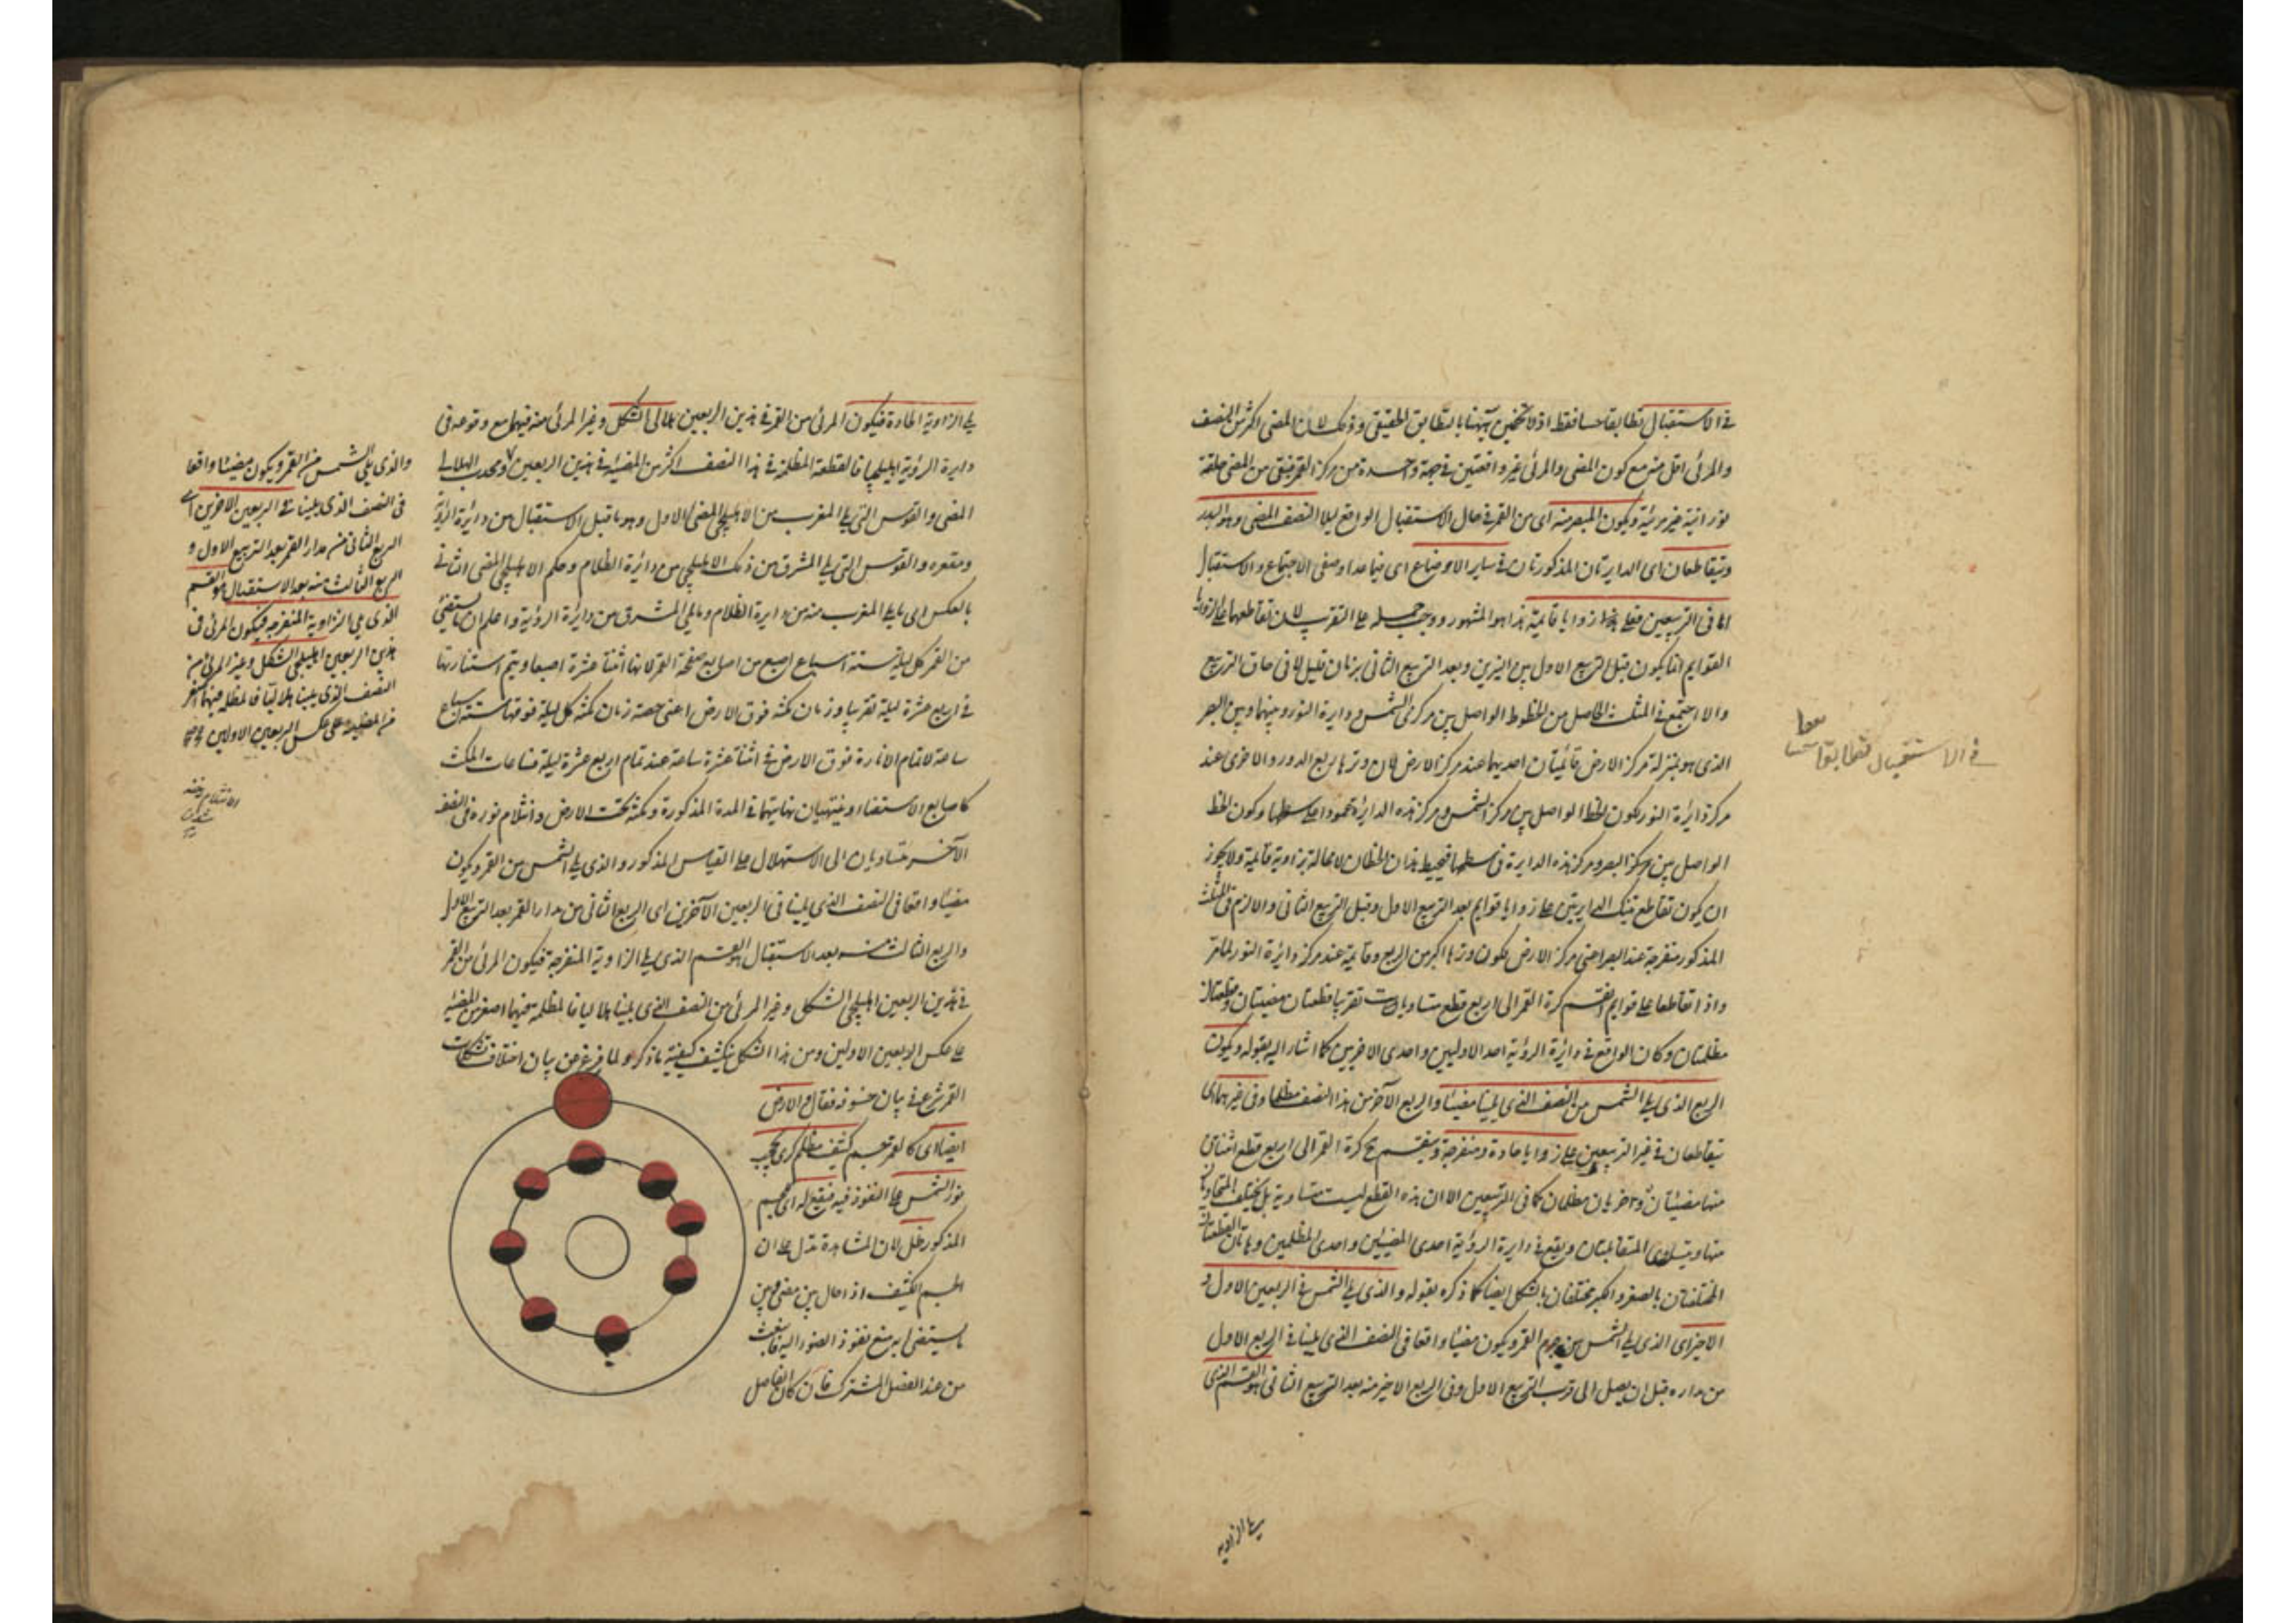 في الاستقبال تطابقا حسا فقط اذ لا تخمين ههنا بالتطابق الحقيقي وذلك لان المضئ اكثر من النصف
والمرئي اقل منه مع كون المضئ والمرئي غير واقعتين في جهة واحدة من مركز القمر فيبقى من المضئ حلقة
نورانية غير مرئية ويكون المبصر منه اى من القمر في حال الاستقبال الواقع ليلا النصف المضئ وهو البدر
وتتقاطعان اى الدايرتان المذكورتان في ساير الاوضاع اى فيما عدا وضعى الاجتماع والاستقبال
اما في التربيعين فعلى زوايا قائمة هذا هو المشهور ووجب حمله على التقريب لان تقاطعهما على الزوايا
القوايم انما يكون قبل التربيع الاول بين النيرين وبعد التربيع الثاني بزمان قليل لا في حاق التربيع
والا اجتمع في المثلث الحاصل من الخطوط الواصل بين مركزى الشمس ودايرة النور وبينهما وبين البصر
الذى هو بمنزلة مركز الارض قائمتان احديهما عند مركز الارض لان وترها ربع الدور والاخرى عند
مركز دايرة النور لكون الخط الواصل بين مركز الشمس ومركز هذه الدايرة عمودا على سطحها وكون الخط
الواصل بين مركز البصر ومركز هذه الدايرة في سطحها فيحيط هذان الخطان لا محالة بزاوية قائمة ولا يجوز
ان يكون تقاطع تينك الدايرتين على زوايا قوايم بعد التربيع الاول وقبل التربيع الثاني والا لزم في المثلث
المذكور منفرجة عند البصر اعنى مركز الارض لكون وترها اكبر من الربع وقائمة عند مركز دائرة النور لما مر
واذا تقاطعا على قوايم انقسم كرة القمر الى اربع قطع متساويات تقريبا قطعتان مضيئتان وقطعتان
مظلمتان وكان الواقع في دائرة الرؤية احد الاوليين واحدى الاخريين كما اشار اليه بقوله ويكون
الربع الذى يلي الشمس من النصف الذى يلينا مضيئا والربع الآخر من هذا النصف مظلما وفي غيرهما اى
يتقاطعان في غير التربيعين على زوايا حادة ومنفرجة وينقسم ح كرة القمر الى اربع قطع اثنتان
منها مضيئتان واخريان مظلمتان كما في التربيعين الا ان هذه القطع ليست متساوية بل يختلف المتجاورتان
منها ويتساوى المتقابلتان ويقع في دايرة الرؤية احدى المضيئتين واحدى المظلمتين وهاتان القطعتان
المختلفتان بالصغر والكبر مختلفتان بالشكل ايضا كما ذكره بقوله والذى يلي الشمس في الربعين الاول و
الاخير اى الذى يلي الشمس من جرم القمر ويكون مضيئا واقعا في النصف الذى يلينا في الربع الاول
من مداره قبل ان يصل الى قرب التربيع الاول وفي الربع الاخير منه بعد التربيع الثاني هو القسم الذى
يلي الزاوية
في الاستقبال تطابقا حسا
يلي الزاوية الحادة فيكون المرئي من القمر في هذين الربعين هلالي الشكل وغير المرئي منه فيهما مع وقوعه في
دايرة الرؤية اهليلجيا فالقطعة المظلمة في هذا النصف اكثر من المضيئة في هذين الربعين ومحدب الهلالي
المضئ والقوس التي يلي المغرب من الاهليلجي المضئ الاول وهو ما قبل الاستقبال من دايرة الرؤية
ومقعره والقوس التي يلي المشرق من ذلك الاهليلجي من دائرة الظلام وحكم الاهليلجي المضئ الثاني
بالعكس اى ما يلي المغرب منه من دايرة الظلام وما يلي المشرق من دائرة الرؤية واعلم ان ما يستضئ
من القمر كل ليلة ستة اسباع اصبع من اصابع صفحة القمر لانها اثنتا عشرة اصبعا ويتم استنارتها
في اربع عشرة ليلة تقريبا وزمان مكثه فوق الارض اعنى حصة زمان مكثه كل ليلة فوقها ستة اسباع
ساعة لاتمام الانارة فوق الارض في اثنتا عشرة ساعة عند تمام اربع عشرة ليلة فساعات المكث
كاصابع الاستضاءة وينتهيان نهايتهما في المدة المذكورة ومكثه تحت الارض وانثلام نوره في النصف
الآخر متساويان الى الاستهلال على القياس المذكور والذى يلي الشمس من القمر ويكون
مضيئا واقعا في النصف الذى يلينا في الربعين الآخرين اى الربع الثاني من مدار القمر بعد التربيع الاول
والربع الثالث منه بعد الاستقبال هو القسم الذى يلي الزاوية المنفرجة فيكون المرئي من القمر
في هذين الربعين اهليلجي الشكل وغير المرئي من النصف الذى يلينا هلاليا فالمظلمة فيهما اصغر من المضيئة
على عكس الربعين الاولين ومن هذا الشكل ينكشف كيفية ما ذكر ولما فرغ من بيان اختلاف تشكلات
القمر شرع في بيان خسوفه فقال والارض
ايضا اى كالقمر جسم كثيف مظلم كرى يحجب
نور الشمس عن النفوذ فيه فيقع له اى للجسم
المذكور ظل لان المشاهدة تدل على ان
الجسم الكثيف اذا حال بين مضئ وبين
ما يستضئ به منع نفوذ الضوء اليه
من عند الفصل المشترك فان كان الفاصل
والذى يلي الشمس من القمر ويكون مضيئا واقعا
في النصف الذى يلينا في الربعين الآخرين اى
الربع الثاني من مدار القمر بعد التربيع الاول و
الربع الثالث منه بعد الاستقبال هو القسم
الذى يلي الزاوية المنفرجة فيكون المرئي في
هذين الربعين اهليلجي الشكل وغير المرئي من
النصف الذى يلينا هلاليا فالمظلمة فيهما اصغر
من المضيئة على عكس الربعين الاولين